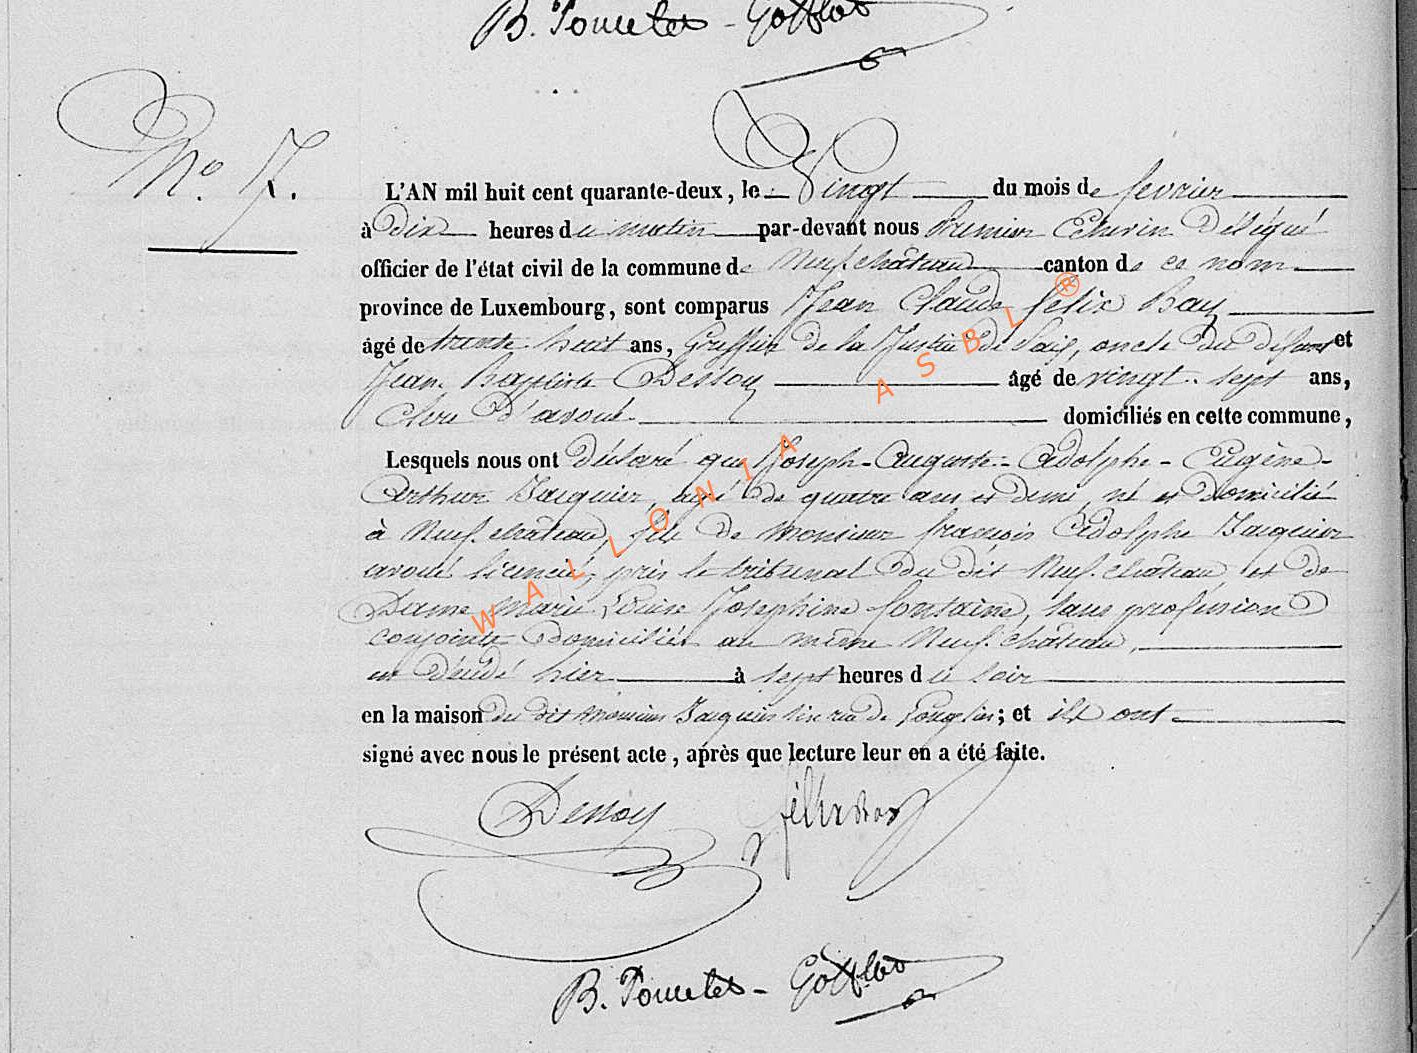 B. Poncelet - Gottlot
No. 7.
L'AN mil huit cent quarante-deux, le Vingt du mois de février
à dix heures du matin par-devant nous Premier Echevin Délégué
officier de l'état civil de la commune de Neufchâteau canton de ce nom
province de Luxembourg, sont comparus Jean Claude felix Bay
âgé de trente huit ans, Greffier de la Justice de Paix, oncle du défunt et
Jean Baptiste Dessoy âgé de vingt-sept ans,
Clerc d'avoué domiciliés en cette commune,
Lesquels nous ont déclaré que Joseph-Auguste-Adolphe-Eugène-
Arthur Jacquier, agé de quatre ans et demi, né et domicilié
à Neufchâteau, fils de Monsieur françois Adolphe Jacquier
avoué licencié, près le tribunal du dit Neufchâteau, et de
Dame Marie Louise Josephine fontaine, sans profession
conjoints domiciliés au même Neufchâteau,
est décédé hier à sept heures du soir
en la maison du dit Monsieur Jacquier sise rue de Longlier; et ils ont
signé avec nous le présent acte, après que lecture leur en a été faite.
Dessoy félix Bay
B. Poncelet - Gottlot
WALLONIA ASBL ®